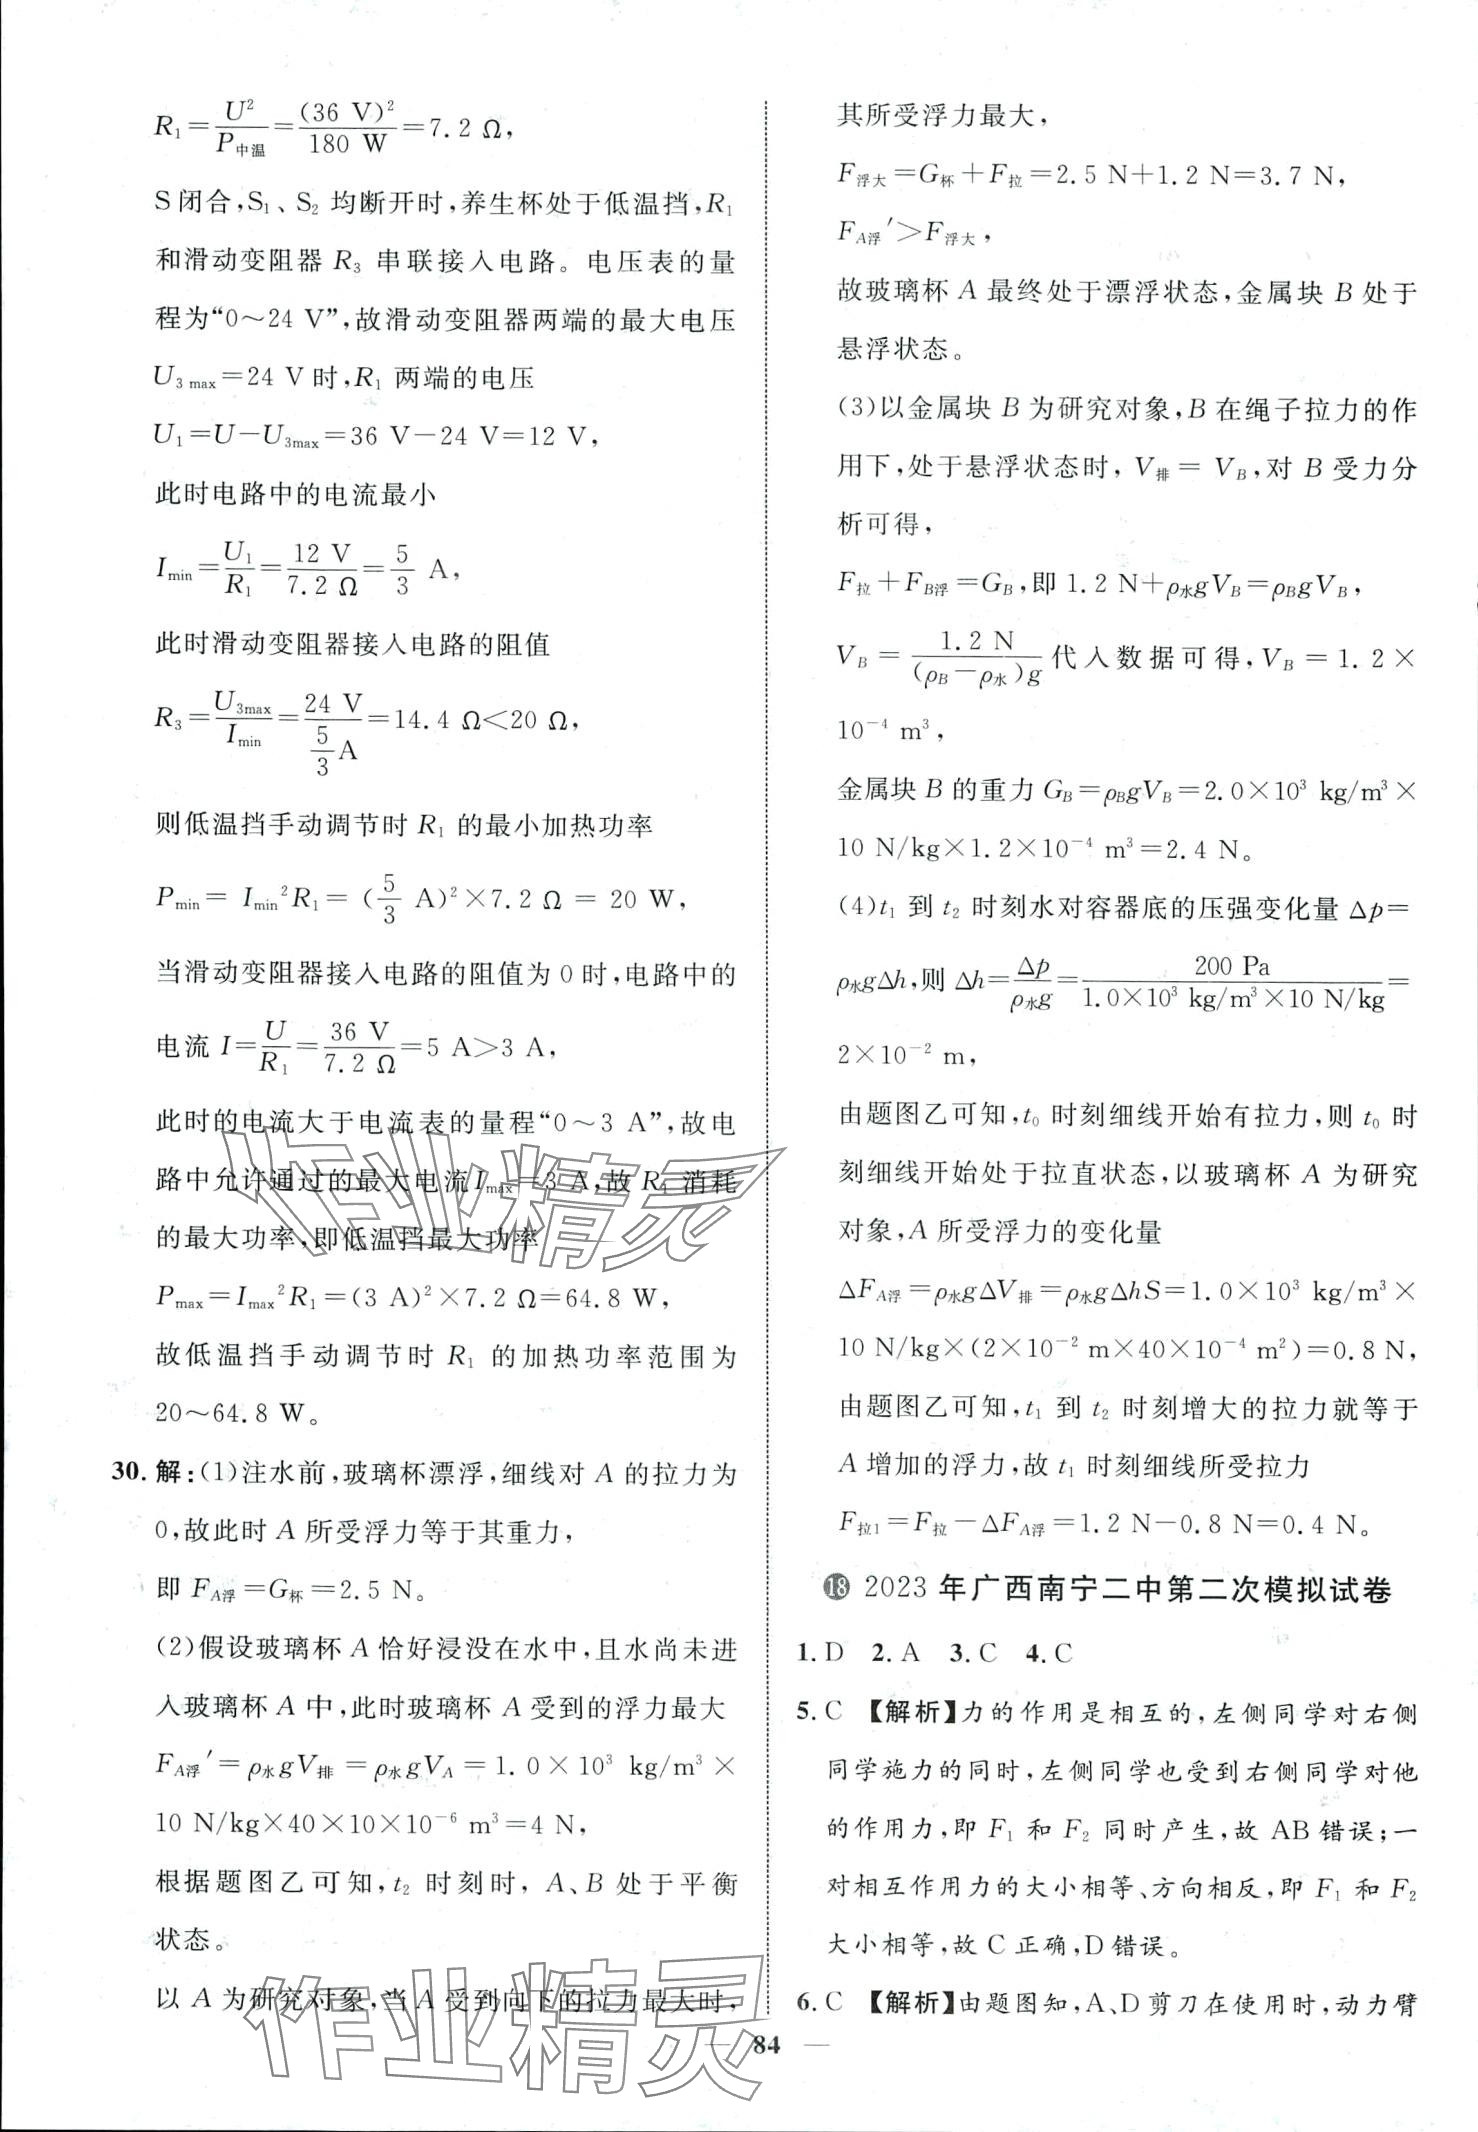 R₁=U²/P中温=(36 V)²/180 W=7.2 Ω,
S闭合,S₁、S₂ 均断开时,养生杯处于低温挡,R₁
和滑动变阻器 R₃ 串联接入电路。电压表的量
程为“0～24 V”,故滑动变阻器两端的最大电压
U₃ max=24 V 时,R₁ 两端的电压
U₁=U−U₃max=36 V−24 V=12 V,
此时电路中的电流最小
Imin=U₁/R₁=12 V/7.2 Ω=5/3 A,
此时滑动变阻器接入电路的阻值
R₃=U₃max/Imin=24 V/(5/3 A)=14.4 Ω<20 Ω,
则低温挡手动调节时 R₁ 的最小加热功率
Pmin= Imin²R₁=(5/3 A)²×7.2 Ω = 20 W,
当滑动变阻器接入电路的阻值为 0 时,电路中的
电流 I=U/R₁=36 V/7.2 Ω=5 A>3 A,
此时的电流大于电流表的量程“0～3 A”,故电
路中允许通过的最大电流Imax=3 A,故 R₁ 消耗
的最大功率,即低温挡最大功率
Pmax=Imax²R₁=(3 A)²×7.2 Ω=64.8 W,
故低温挡手动调节时 R₁ 的加热功率范围为
20～64.8 W。
30. 解:(1)注水前,玻璃杯漂浮,细线对 A 的拉力为
0,故此时 A 所受浮力等于其重力,
即 FA浮=G杯=2.5 N。
(2)假设玻璃杯 A 恰好浸没在水中,且水尚未进
入玻璃杯 A 中,此时玻璃杯 A 受到的浮力最大
FA浮′=ρ水gV排=ρ水gVA=1.0×10³ kg/m³×
10 N/kg×40×10×10⁻⁶ m³=4 N,
根据题图乙可知,t₂ 时刻时,A、B 处于平衡
状态。
以 A 为研究对象,当 A 受到向下的拉力最大时,
其所受浮力最大,
F浮大=G杯+F拉=2.5 N+1.2 N=3.7 N,
FA浮′>F浮大,
故玻璃杯 A 最终处于漂浮状态,金属块 B 处于
悬浮状态。
(3)以金属块 B 为研究对象,B 在绳子拉力的作
用下,处于悬浮状态时,V排=VB,对 B 受力分
析可得,
F拉+FB浮=GB,即 1.2 N+ρ水gVB=ρBgVB,
VB=1.2 N/(ρB−ρ水)g 代入数据可得,VB=1.2×
10⁻⁴ m³,
金属块 B 的重力 GB=ρBgVB=2.0×10³ kg/m³×
10 N/kg×1.2×10⁻⁴ m³=2.4 N。
(4)t₁ 到 t₂ 时刻水对容器底的压强变化量 Δp=
ρ水gΔh,则 Δh=Δp/ρ水g=200 Pa/1.0×10³ kg/m³×10 N/kg=
2×10⁻² m,
由题图乙可知,t₀ 时刻细线开始有拉力,则 t₀ 时
刻细线开始处于拉直状态,以玻璃杯 A 为研究
对象,A 所受浮力的变化量
ΔFA浮=ρ水gΔV排=ρ水gΔhS=1.0×10³ kg/m³×
10 N/kg×(2×10⁻² m×40×10⁻⁴ m²)=0.8 N,
由题图乙可知,t₁ 到 t₂ 时刻增大的拉力就等于
A 增加的浮力,故 t₁ 时刻细线所受拉力
F拉1=F拉−ΔFA浮=1.2 N−0.8 N=0.4 N。
18 2023 年广西南宁二中第二次模拟试卷
1. D 2. A 3. C 4. C
5. C 【解析】力的作用是相互的,左侧同学对右侧
同学施力的同时,左侧同学也受到右侧同学对他
的作用力,即 F₁ 和 F₂ 同时产生,故 AB 错误;一
对相互作用力的大小相等、方向相反,即 F₁ 和 F₂
大小相等,故 C 正确,D 错误。
6. C 【解析】由题图知,A、D 剪刀在使用时,动力臂
— 84 —
作业精灵
作业精灵